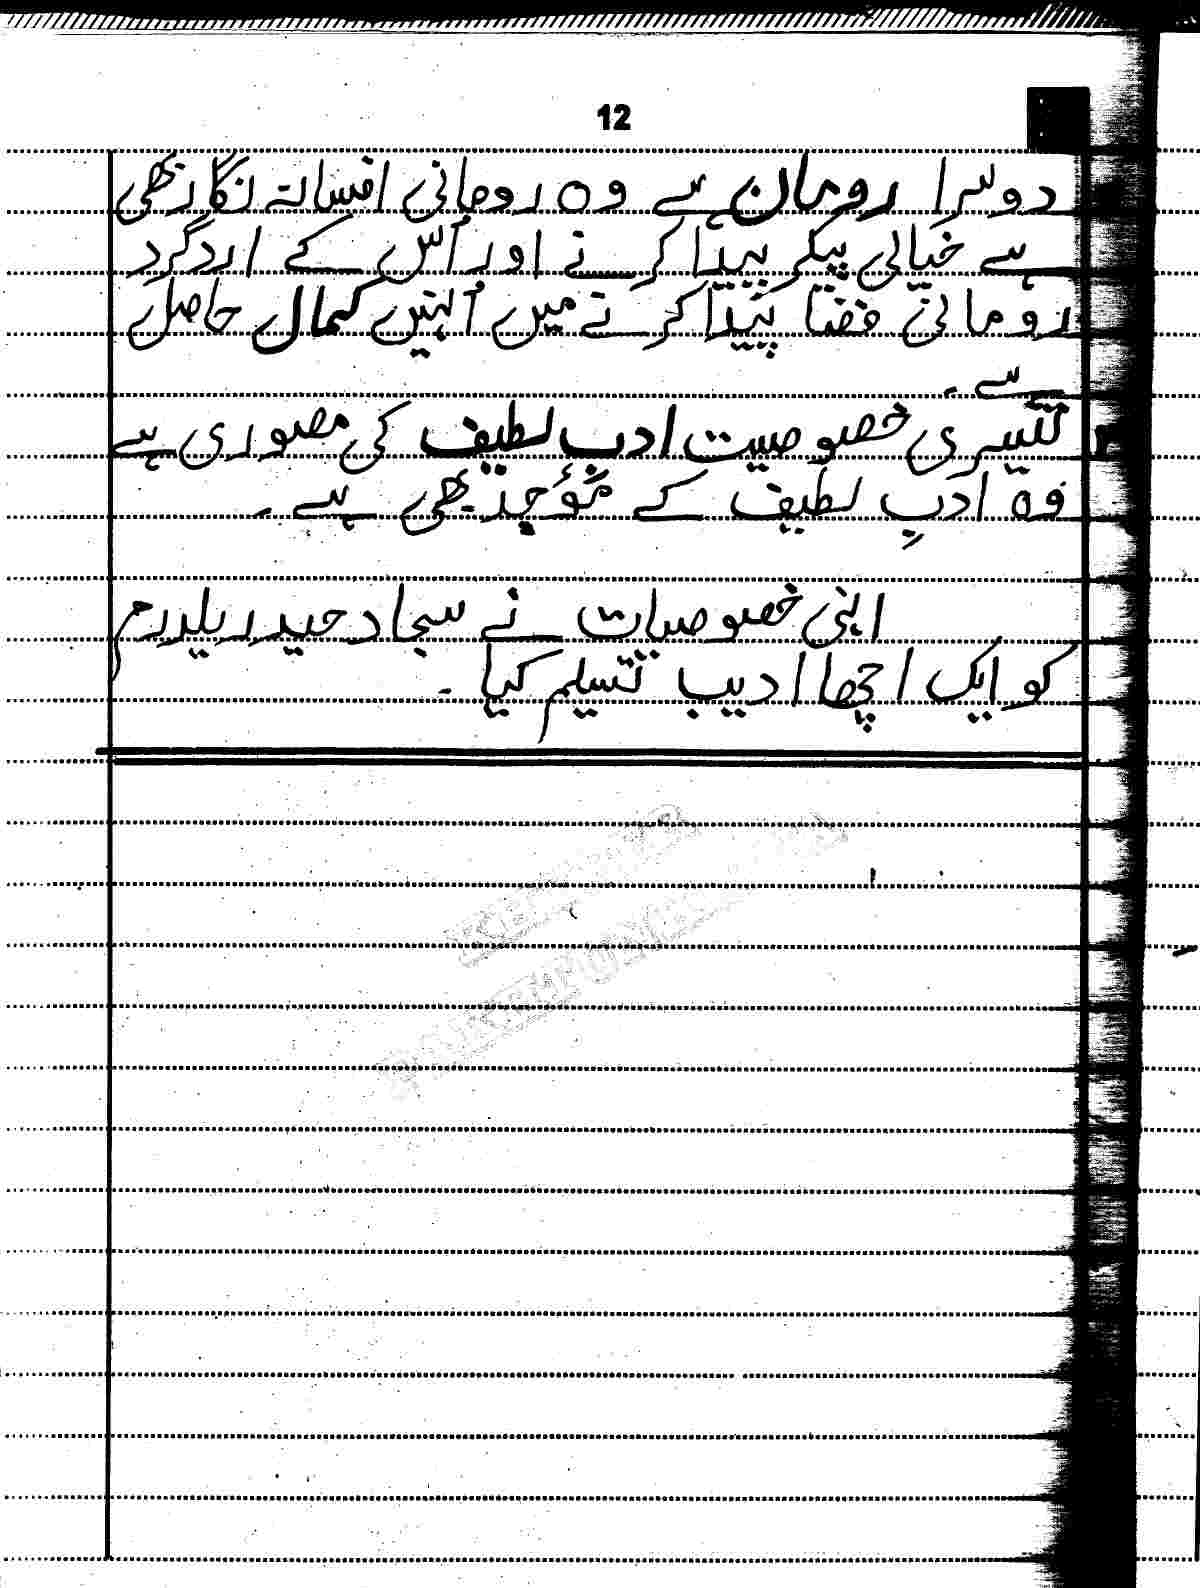 12
دوسرا رومان ہے وہ رومانی افسانہ نگار بھی
ہے خیالی پیکر پیدا کرنے اور اُس کے اردگرد
رومانی فضا پیدا کرنے میں اُنہیں کمال حاصل
ہے۔
تیسری خصوصیت ادبِ لطیف کی مصوری ہے
وہ ادبِ لطیف کے مؤجد بھی ہے۔
انہی خصوصیات نے سجاد حیدر یلدرم
کو ایک اچھا ادیب تسلیم کیا۔